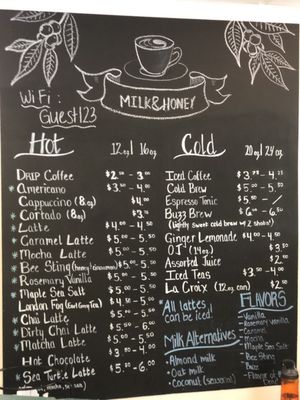 WiFi:
Guest123
MILK&HONEY
Hot 12 oz | 16 oz
Drip Coffee $2.50 - 3.00
* Americano $3.50 - 4.00
Cappuccino (8oz) $4.00
* Cortado (8oz) $3.75
* Latte $4.00 - 4.50
* Caramel Latte $5.00 - 5.50
* Mocha Latte $5.00 - 5.50
* Bee Sting (honey & cinnamon) $5.00 - 5.50
* Rosemary Vanilla $5.00 - 5.50
* Maple Sea Salt $5.00 - 5.50
London Fog (Earl Grey Tea) $4.50 - 5.00
* Chai Latte $5.00 - 5.50
* Dirty Chai Latte $5.50 - 6.00
* Matcha Latte $5.00 - 5.50
Hot Chocolate $3.00 - 4.00
* Sea Turtle Latte $5.00 - 6.00
Cold 20 oz | 24 oz
Iced Coffee $3.75 - 4.25
Cold Brew $5.00 - 5.50
Espresso Tonic $5 / 5.50
Buzz Brew $6.00 - 6.50
(lightly sweet cold brew w/ 2 shots!)
Ginger Lemonade $4.00 - 4.50
OJ (14oz) $3
Assorted Juice $2
Iced Teas $3.50 - 4.00
La Croix (12 oz can) $2
*All lattes
can be iced!
Milk Alternatives -
Almond milk
Oat milk
Coconut (seasonal)
FLAVORS
- Vanilla
- Rosemary vanilla
- Caramel
- Mocha
- Maple Sea Salt
- Bee Sting
- Buzz
- Flavor of the